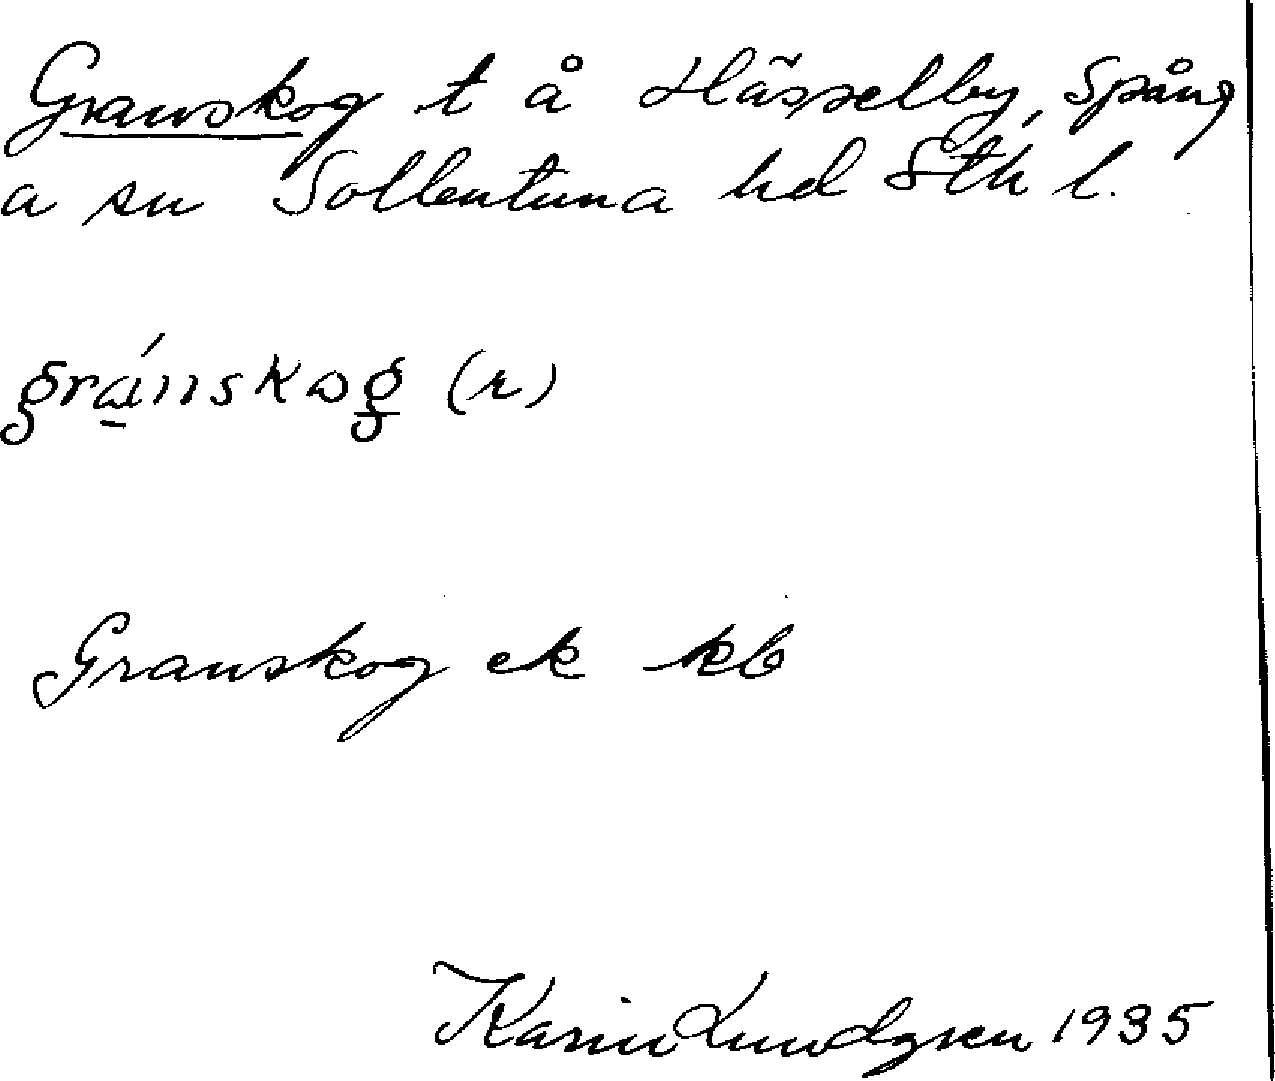 Granskog t å Hässelby, Spång
a sn Sollentuna hd Sth l.
gránskωg (r)
Granskog ek kb
Karin Lundgren 1935